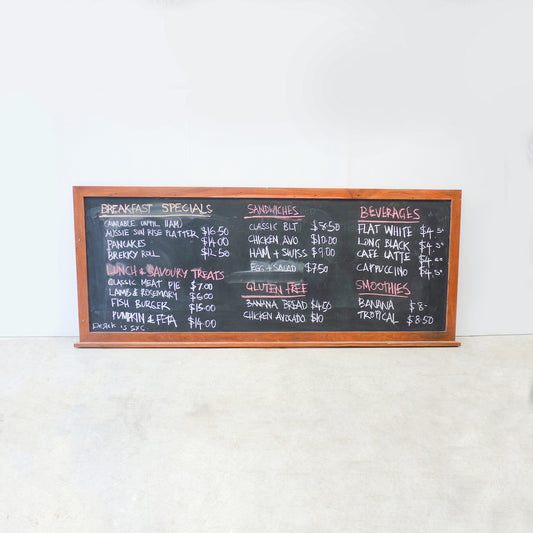 BREAKFAST SPECIALS
(AVAILABLE UNTIL 11AM)
AUSSIE SUN RISE PLATTER $16.50
PANCAKES $14.00
BREKKY ROLL $12.50
LUNCH & SAVOURY TREATS
CLASSIC MEAT PIE $7.00
LAMB & ROSEMARY $6.00
FISH BURGER $15.00
PUMPKIN & FETA $14.00
SANDWICHES
CLASSIC BLT $8.50
CHICKEN AVO $10.00
HAM + SWISS $9.00
EGG + SALAD $7.50
GLUTEN FREE
BANANA BREAD $4.50
CHICKEN AVOCADO $10
BEVERAGES
FLAT WHITE $4.5
LONG BLACK
CAFE LATTE
CAPPUCCINO $4.5
SMOOTHIES
BANANA $8-
TROPICAL $8.50